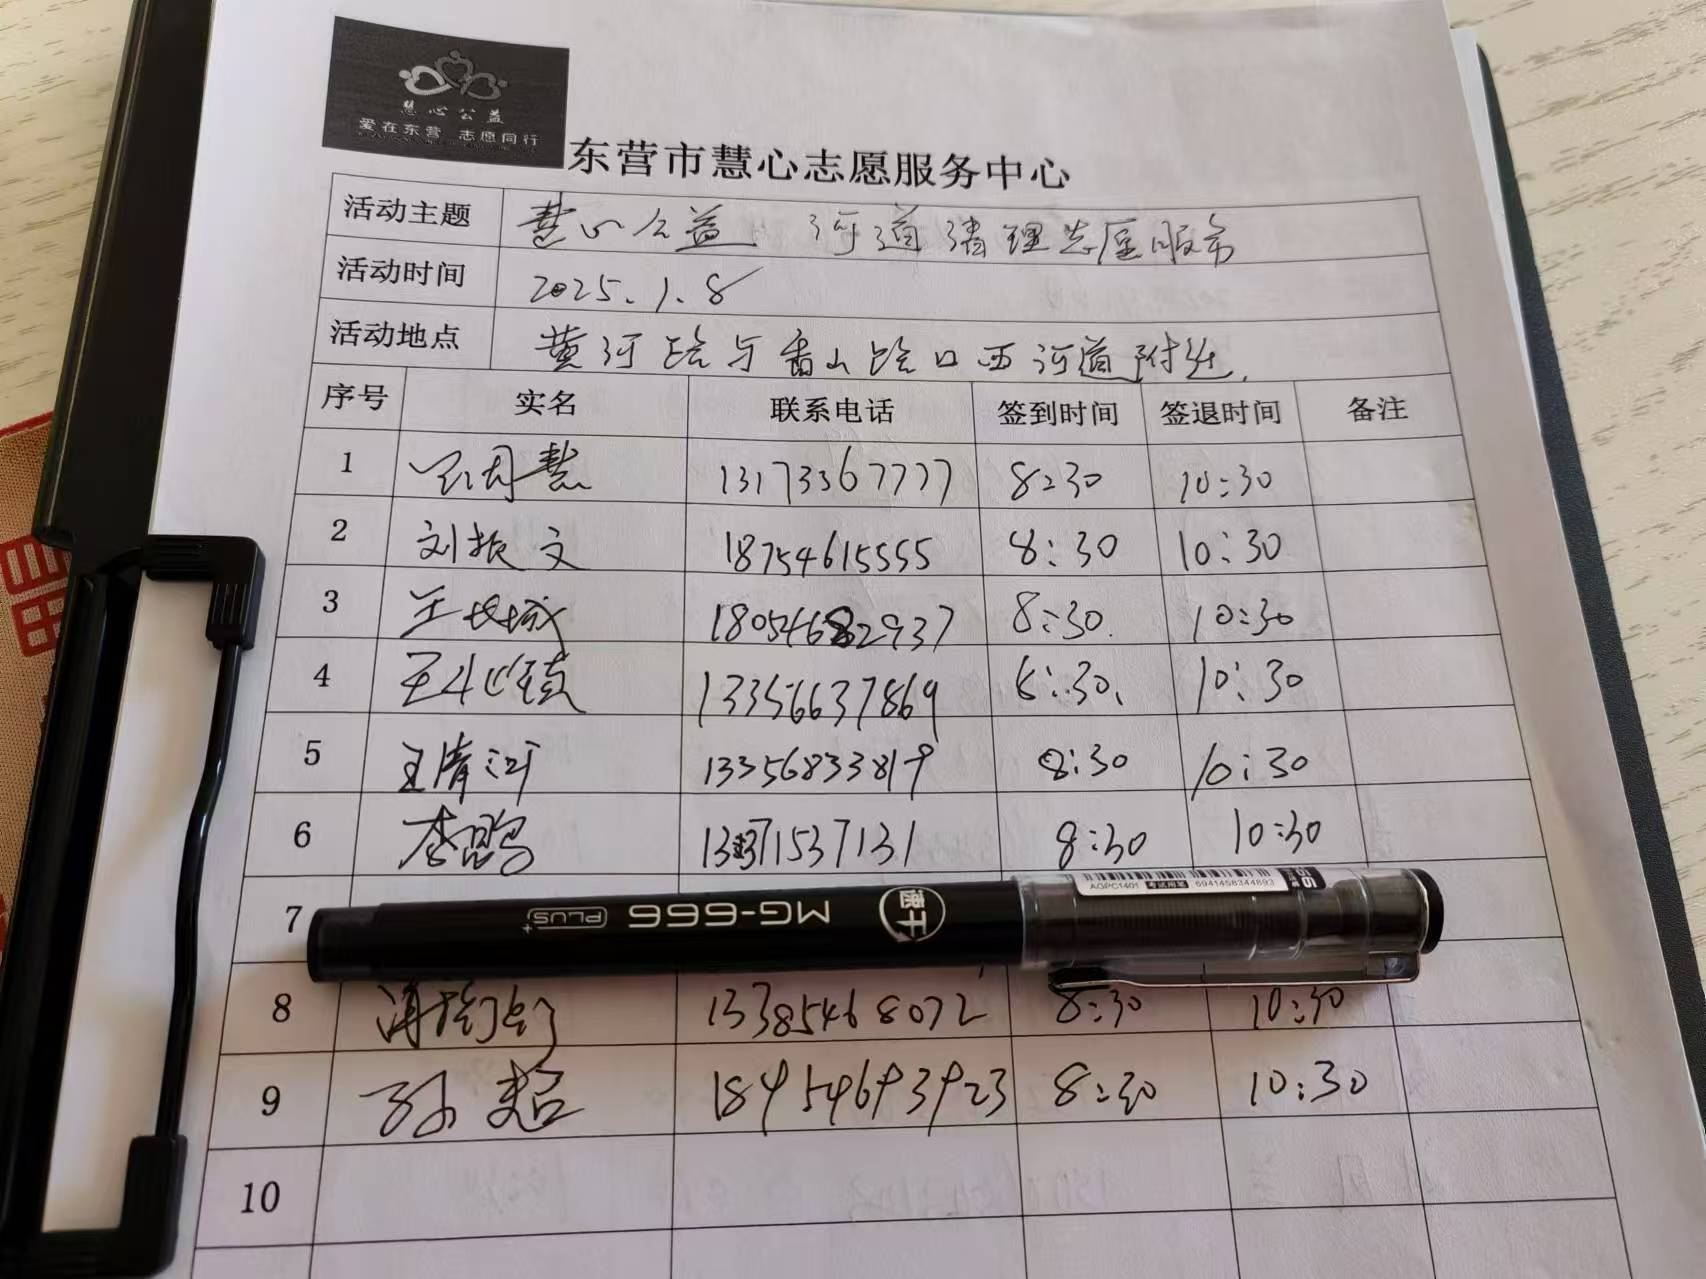 慧心公益
爱在东营 志愿同行
东营市慧心志愿服务中心
活动主题 慧心公益 河道清理志愿服务
活动时间 2025.1.8
活动地点 黄河路与香山路口西河道附近.
序号 实名 联系电话 签到时间 签退时间 备注
1 13173367777 8:30 10:30
2 刘振文 18754615555 8:30 10:30
3 王长城 18054682937 8:30. 10:30
4 王 13356637869 8:30. 10:30
5 王清河 13356833819 8:30 10:30
6 李 1337 1537131 8:30 10:30
7
8 13385468072 8:30 10:30
9 孙超 18954693923 8:30 10:30
10
速干 MG-666 PLUS+
AGPC1401 考试用笔 6941458344893